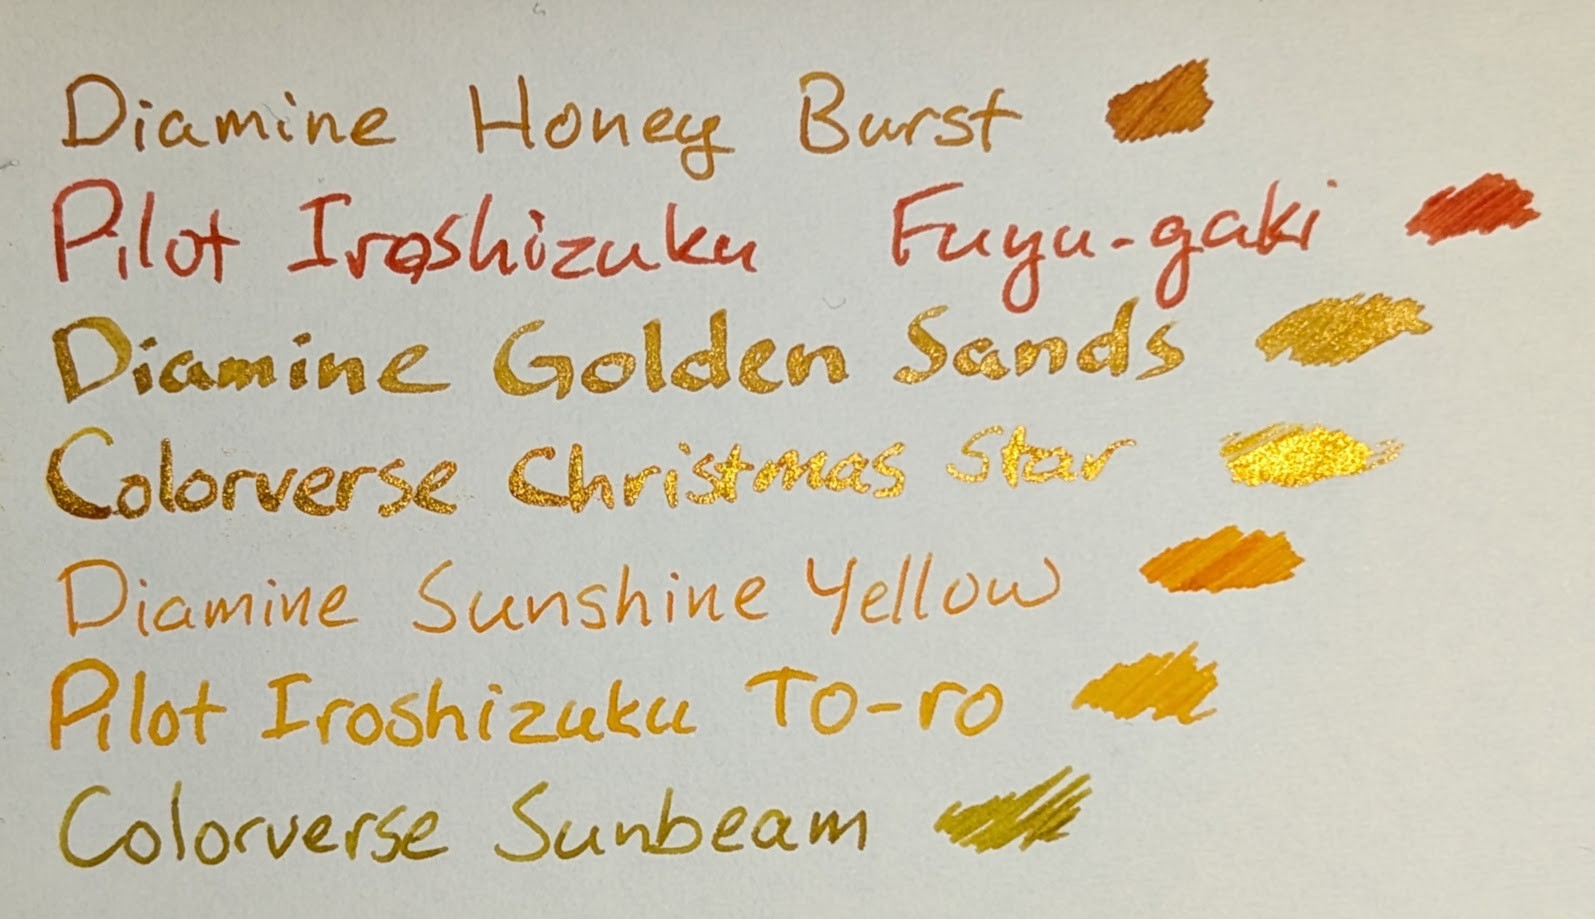 Diamine Honey Burst
Pilot Iroshizuku Fuyu-gaki
Diamine Golden Sands
Colorverse Christmas Star
Diamine Sunshine Yellow
Pilot Iroshizuku To-ro
Colorverse Sunbeam